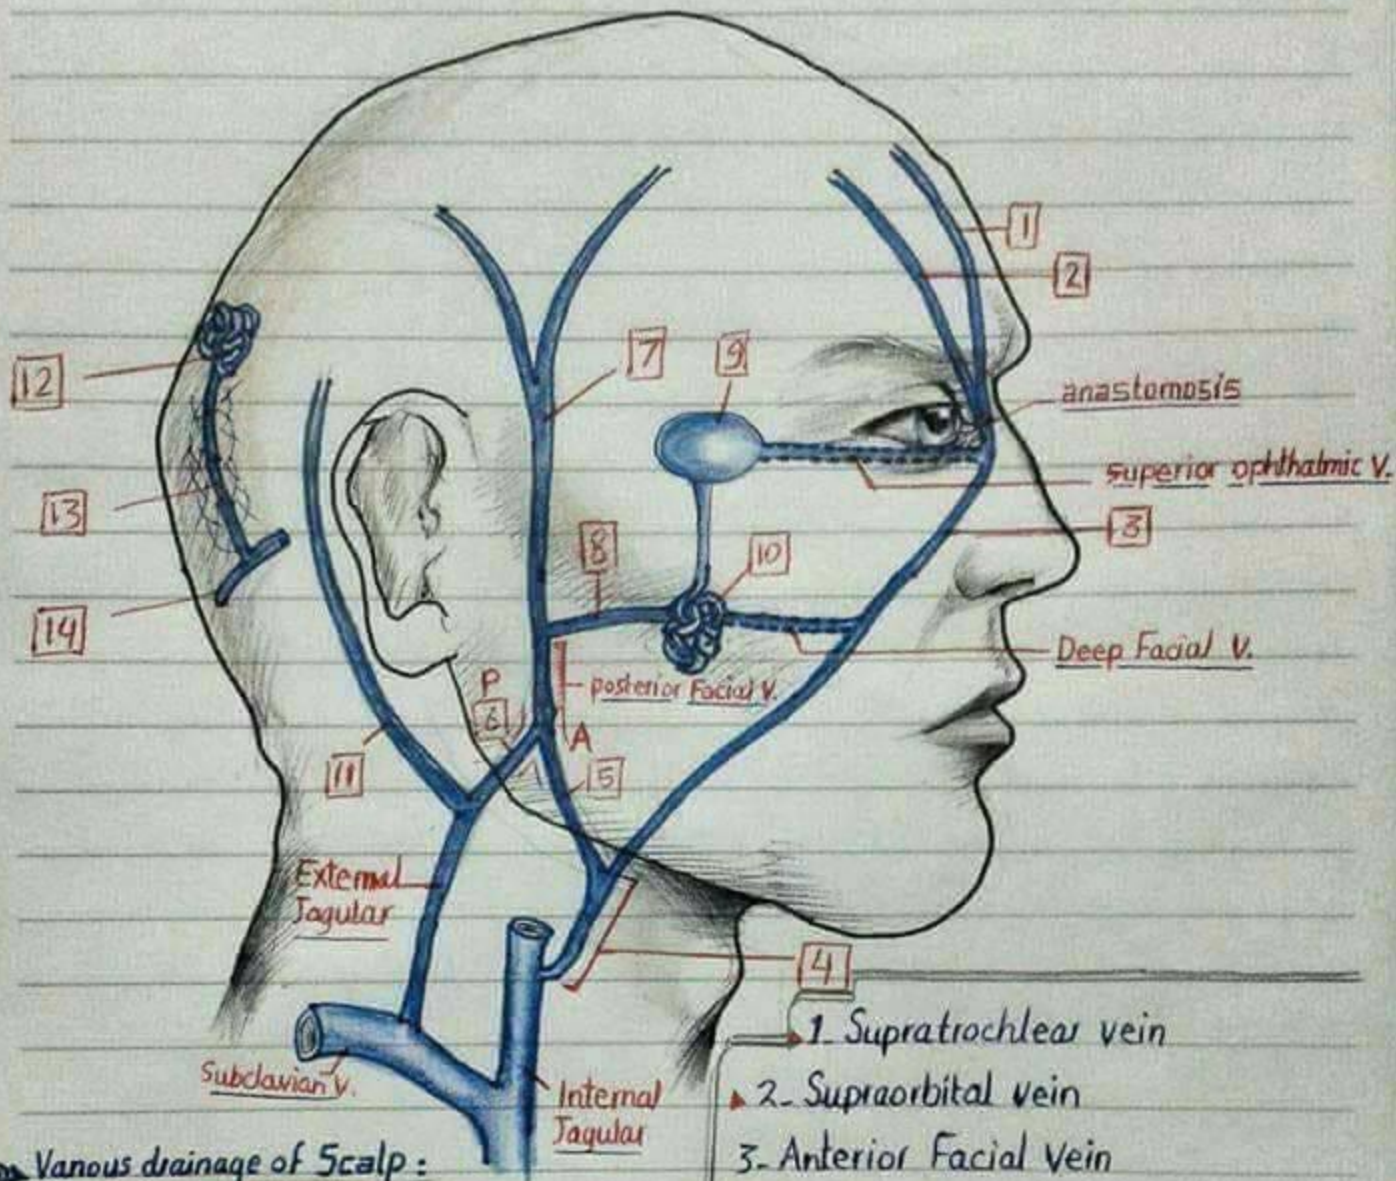 1
2
7
9
12
anastomosis
superior ophthalmic V.
13
3
8
10
14
Deep Facial V.
P
posterior Facial V.
6
A
11
5
External
Jagular
4
1- Supratrochlear vein
Subclavian V.
Internal
Jagular
2- Supraorbital vein
Vanous drainage of Scalp:
3- Anterior Facial Vein